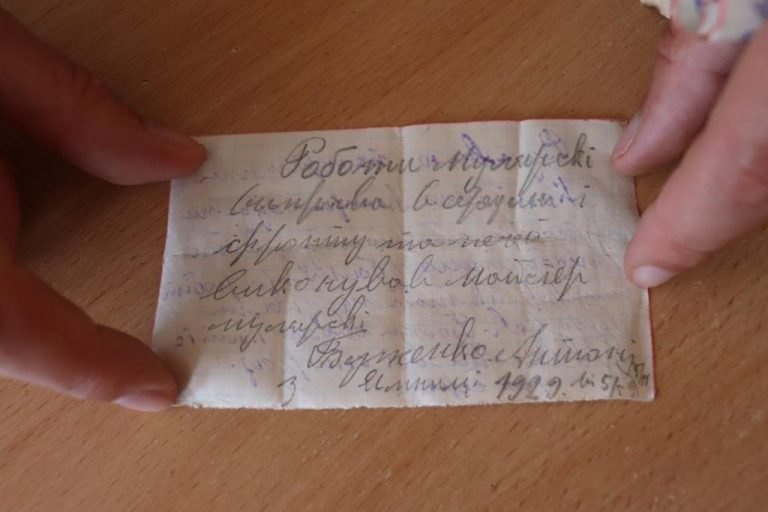 Роботи мулярскі
виправа всередині і
фронту та печей
виконував майстер
мулярскі
Бурженко Антоні
з Ямниці 1929.